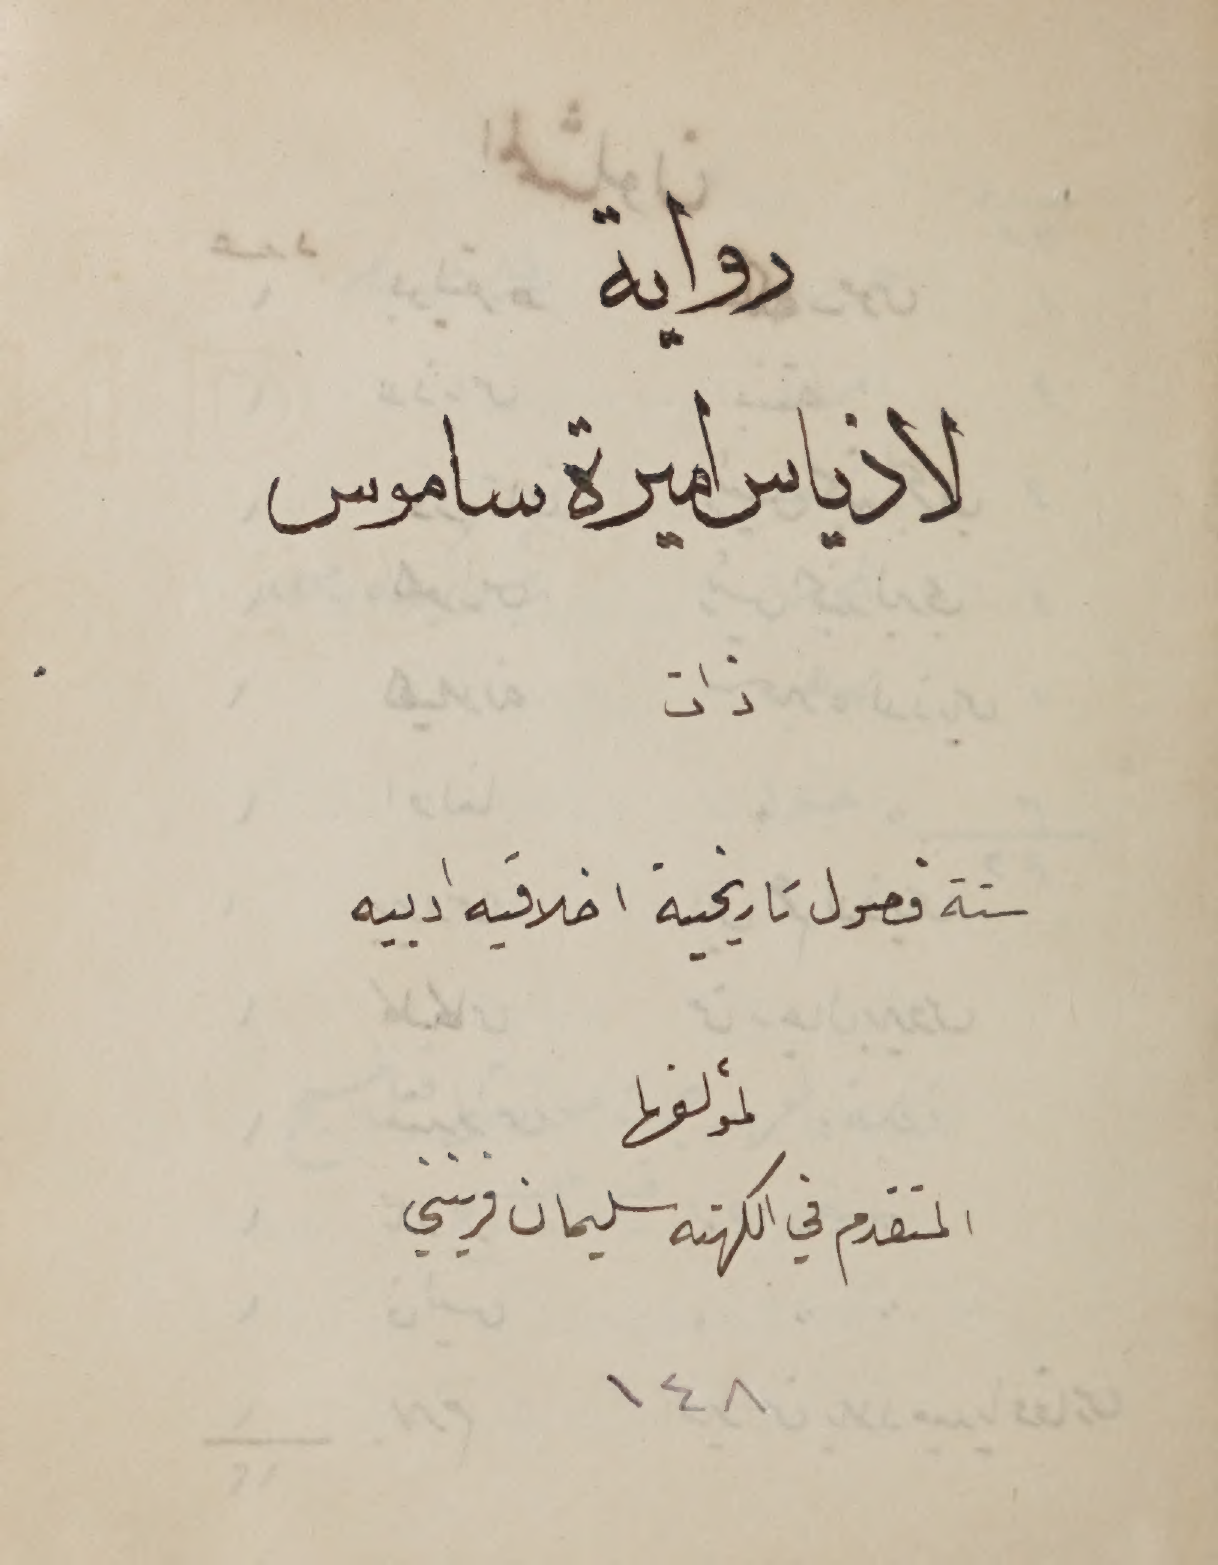 رواية
لاذياس اميرة ساموس
ذات
ستة فصول تاريخية اخلاقيه ادبيه
لمؤلفها
المتقدم في الكهنه سليمان فرينني
١٤٨